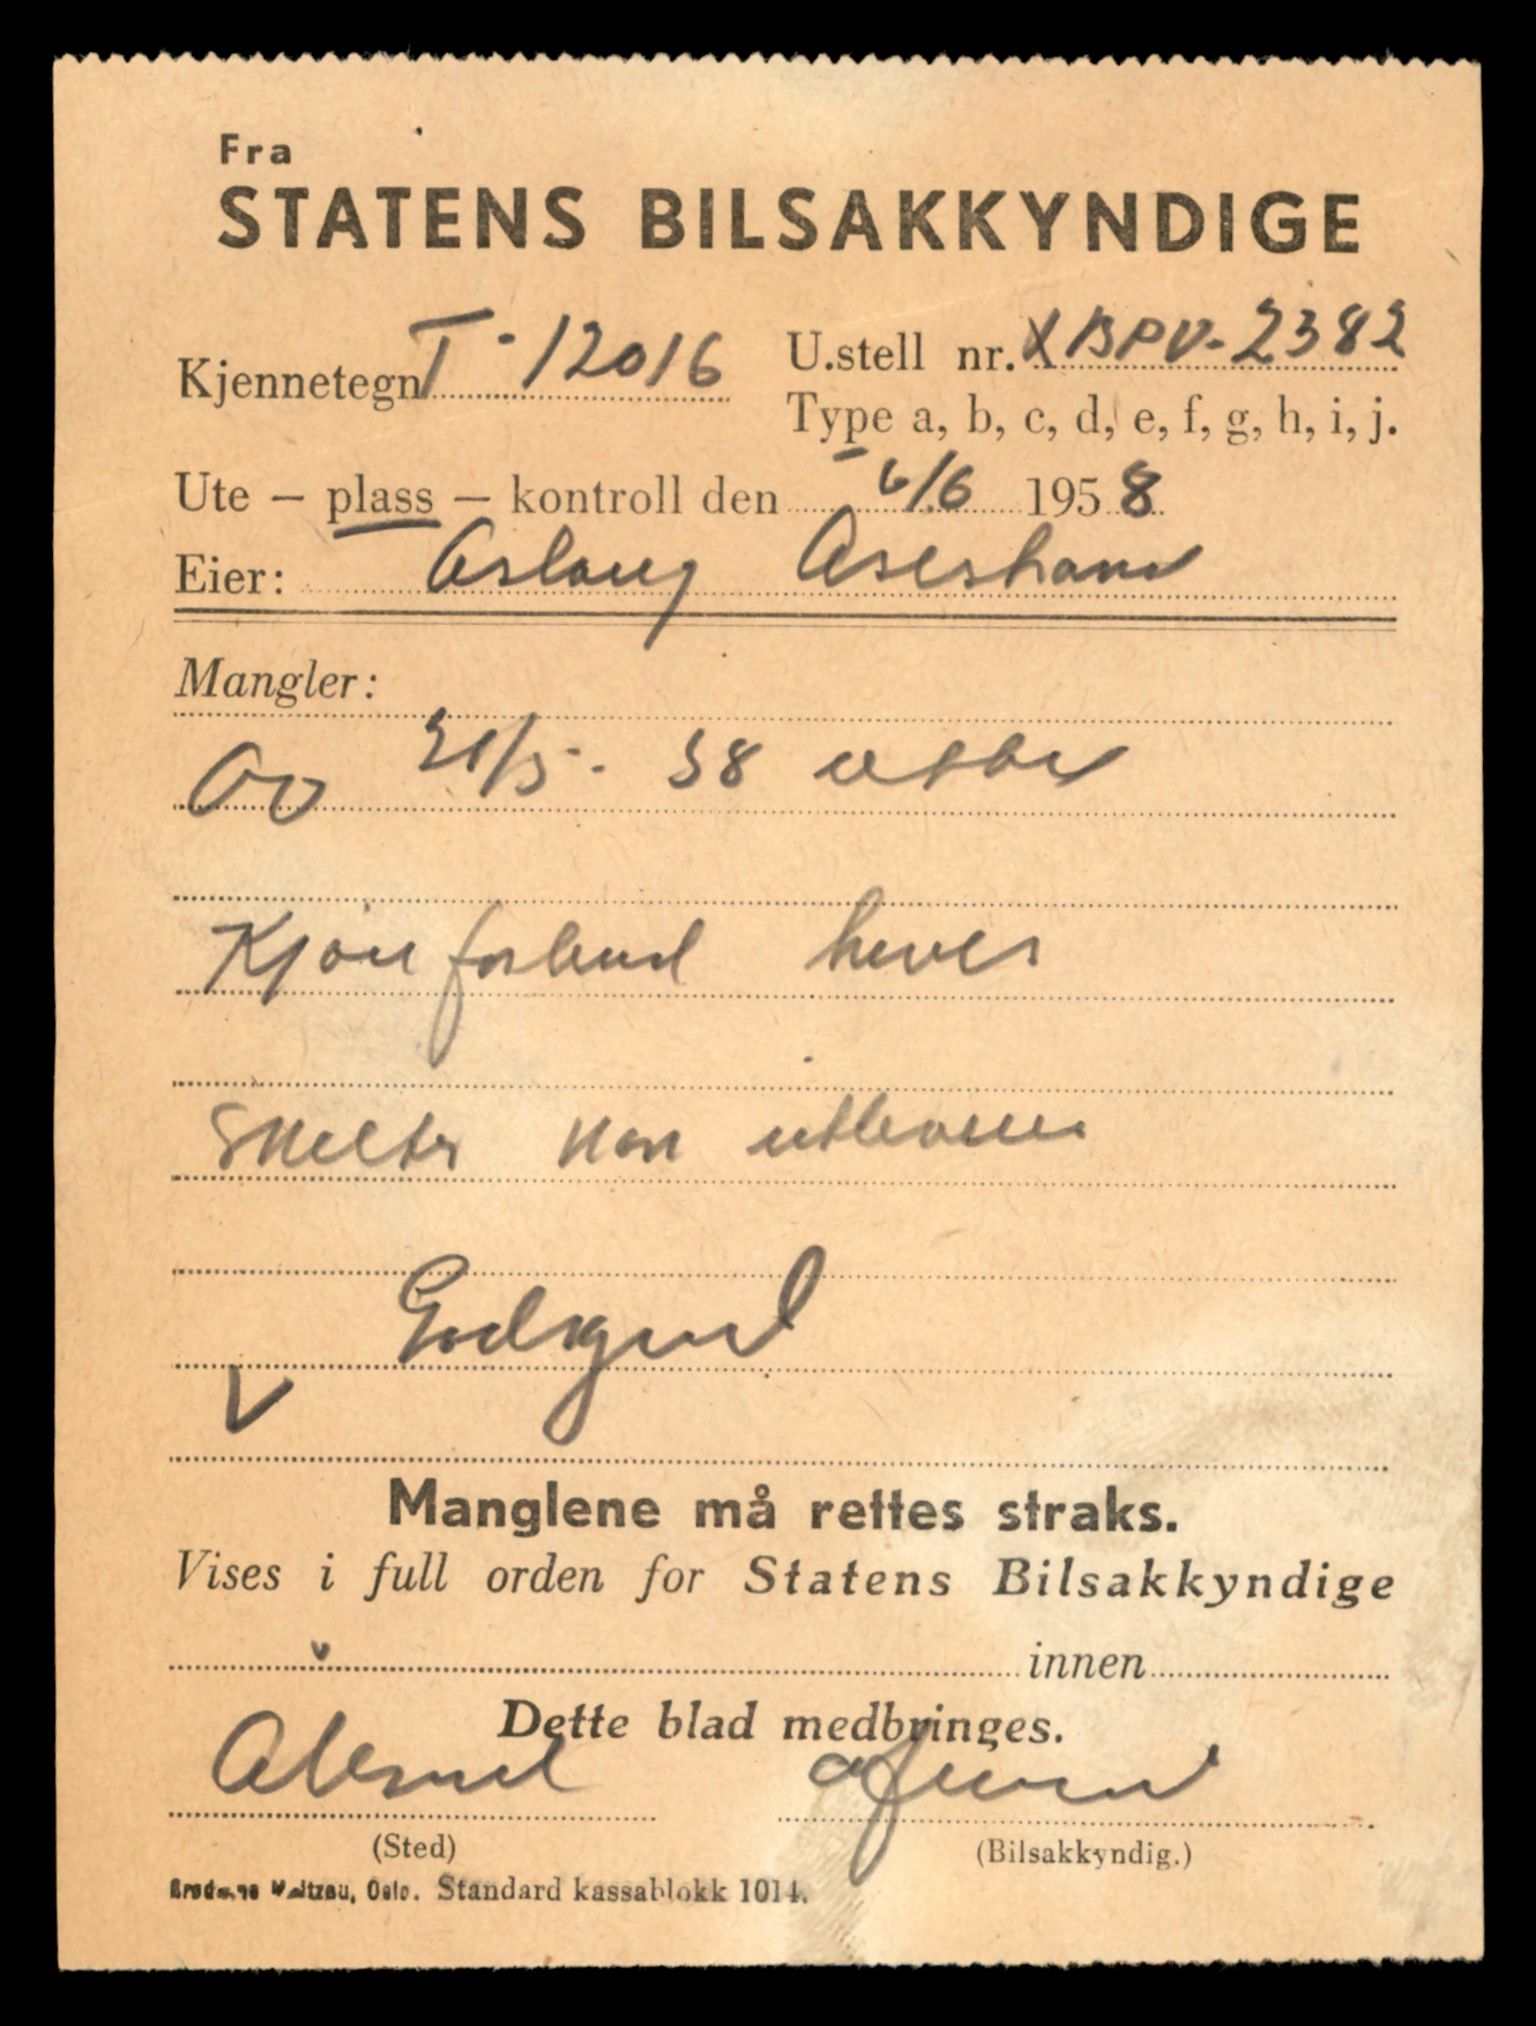 Fra
STATENS BILSAKKYNDIGE
Kjennetegn T-12016
U.stell nr. XBPV-2382
Type a, b, c, d, e, f, g, h, i, j.
Ute — plass — kontroll den 6/6 1958
Eier: Aslaug
Mangler:
Av 21/5-58 utbe
Kjøreforbud heves
Skelter kan utleveres
Godkjend
V
Manglene må rettes straks.
Vises i full orden for Statens Bilsakkyndige
innen
Dette blad medbringes.
Ålesund
(Sted) (Bilsakkyndig.)
Brødrene Waitzau, Oslo. Standard kassablokk 1014.